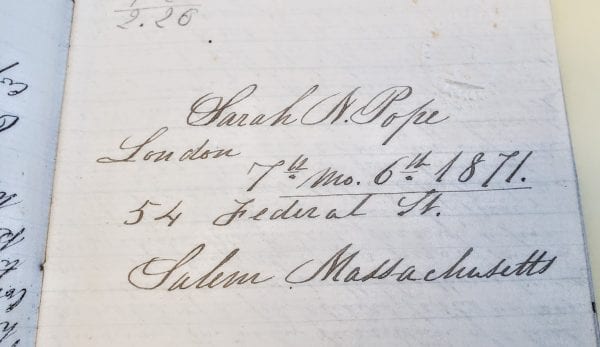 2.26
Sarah N. Pope
London
7th Mo. 6th 1871.
54 Federal St.
Salem Massachusetts